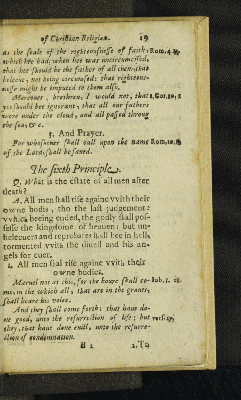 of Christian Religion. 19
as the seale of the righteousnesse of faith: Rom.4.
which hee had, when hee was uncircumcised,
that hee should be the father of all them, that
beleeve, not being circumcised: that righteous-
nesse might be imputed to them also.
Moreover, brethren, I would not, that 1.Cor.10.1
yee should bee ignorant, that all our fathers
were under the cloud, and all passed throug
the sea, &c.
3. And Prayer.
For whosoever shall call upon the name Rom.10.
of the Lord, shall be saved.
The sixth Principle.
Q. What is the estate of all men after
death?
A. All men shall rise againe vvith their
owne bodis, tho the last judgement:
vvhich beeing ended, the godly shall pos-
sesse the kingdome of heaven: but un-
beleeuers and reprobates shall bee in hell,
tormented vvith the divell and his an-
gels for euer.
1. All men shal rise againe vvith their
owne bodies.
Marvel not at this, for the houre shall co- Ioh.5. 28.
me, in the which all, that are in the graves,
shall heare his voice.
And they shall come forth: that have do-
ne good, unto the resurrection of life; but vers.29.
they, that have done euill, unto the resurre-
ction of condemnation.
B 2 2.To